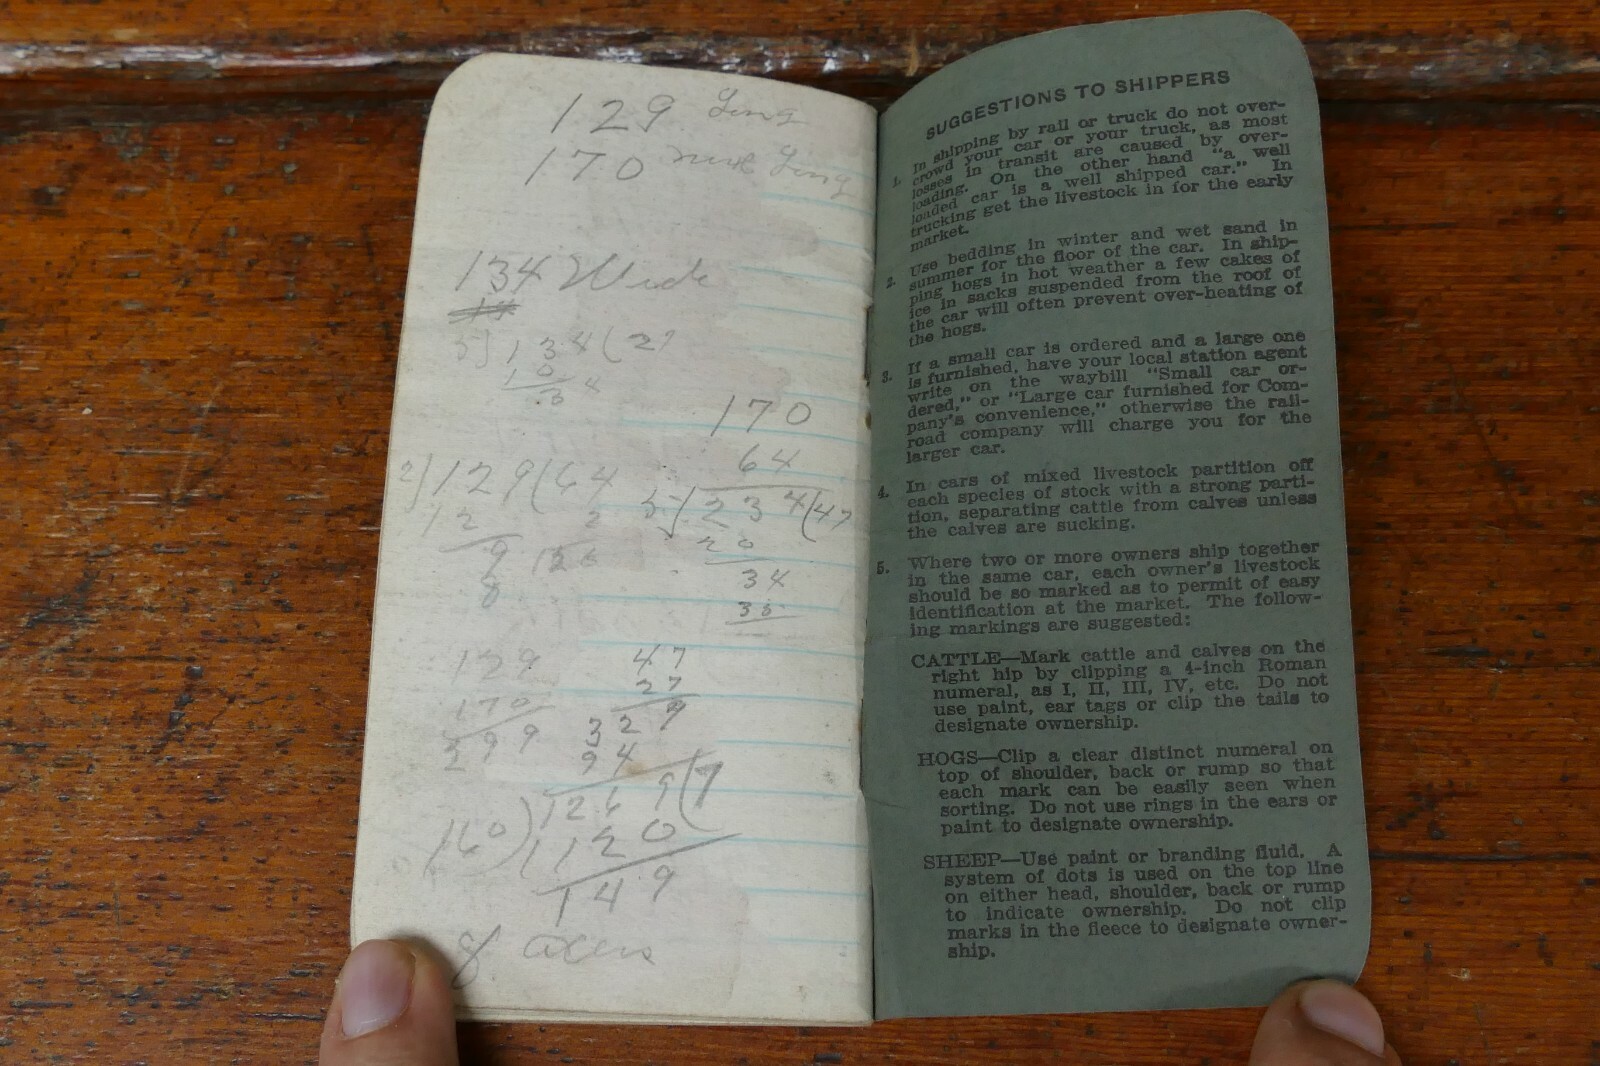 129 Long
170 Long
134 Wide
5)134(27
10
34
170
64
2)129(64
12
9
8
2
5)234(47
20
34
35
129
170
299
47
27
329
94
160)1269(7
1120
149
8 acers
SUGGESTIONS TO SHIPPERS
1. In shipping by rail or truck do not over-
crowd your car or your truck, as most
losses in transit are caused by over-
loading. On the other hand "a well
loaded car is a well shipped car." In
trucking get the livestock in for the early
market.
2. Use bedding in winter and wet sand in
summer for the floor of the car. In ship-
ping hogs in hot weather a few cakes of
ice in sacks suspended from the roof of
the car will often prevent over-heating of
the hogs.
3. If a small car is ordered and a large one
is furnished, have your local station agent
write on the waybill "Small car or-
dered," or "Large car furnished for Com-
pany's convenience," otherwise the rail-
road company will charge you for the
larger car.
4. In cars of mixed livestock partition off
each species of stock with a strong parti-
tion, separating cattle from calves unless
the calves are sucking.
5. Where two or more owners ship together
in the same car, each owner's livestock
should be so marked as to permit of easy
identification at the market. The follow-
ing markings are suggested:
CATTLE—Mark cattle and calves on the
right hip by clipping a 4-inch Roman
numeral, as I, II, III, IV, etc. Do not
use paint, ear tags or clip the tails to
designate ownership.
HOGS—Clip a clear distinct numeral on
top of shoulder, back or rump so that
each mark can be easily seen when
sorting. Do not use rings in the ears or
paint to designate ownership.
SHEEP—Use paint or branding fluid. A
system of dots is used on the top line
on either head, shoulder, back or rump
to indicate ownership. Do not clip
marks in the fleece to designate owner-
ship.